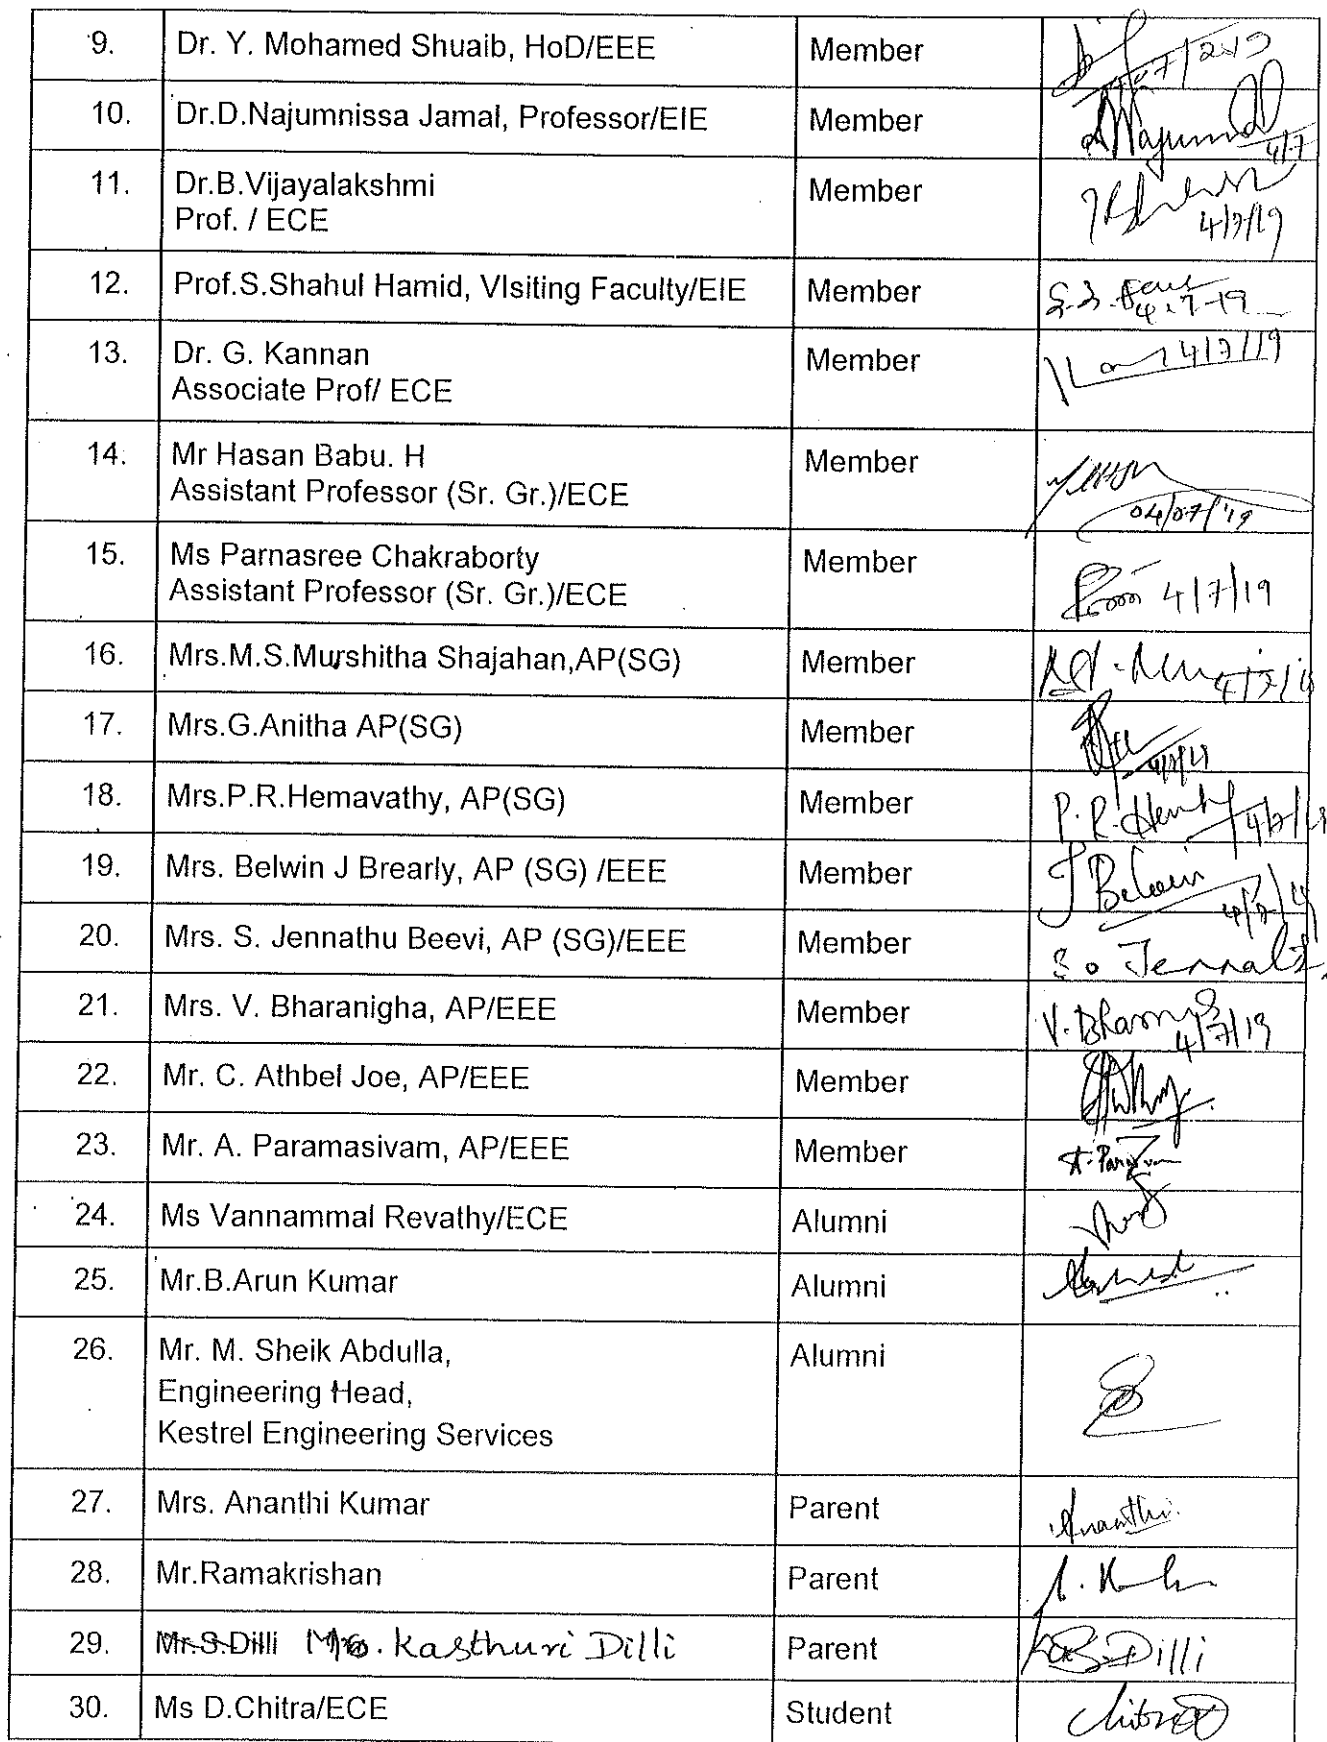 9. Dr. Y. Mohamed Shuaib, HoD/EEE Member
10. Dr.D.Najumnissa Jamal, Professor/EIE Member 4/7
11. Dr.B.Vijayalakshmi Member
Prof. / ECE 4/7/19
12. Prof.S.Shahul Hamid, VIsiting Faculty/EIE Member 4.7.19
13. Dr. G. Kannan Member 4/7/19
Associate Prof/ ECE
14. Mr Hasan Babu. H Member
Assistant Professor (Sr. Gr.)/ECE 04/07/19
15. Ms Parnasree Chakraborty Member
Assistant Professor (Sr. Gr.)/ECE 4/7/19
16. Mrs.M.S.Murshitha Shajahan,AP(SG) Member
17. Mrs.G.Anitha AP(SG) Member
18. Mrs.P.R.Hemavathy, AP(SG) Member P.R.
19. Mrs. Belwin J Brearly, AP (SG) /EEE Member J Belwin
20. Mrs. S. Jennathu Beevi, AP (SG)/EEE Member
21. Mrs. V. Bharanigha, AP/EEE Member 4/7/19
22. Mr. C. Athbel Joe, AP/EEE Member
23. Mr. A. Paramasivam, AP/EEE Member
24. Ms Vannammal Revathy/ECE Alumni
25. Mr.B.Arun Kumar Alumni
26. Mr. M. Sheik Abdulla, Alumni
Engineering Head,
Kestrel Engineering Services
27. Mrs. Ananthi Kumar Parent Ananthi
28. Mr.Ramakrishan Parent
29. Mr.S.Dilli Mrs. Kasthuri Dilli Parent Dilli
30. Ms D.Chitra/ECE Student